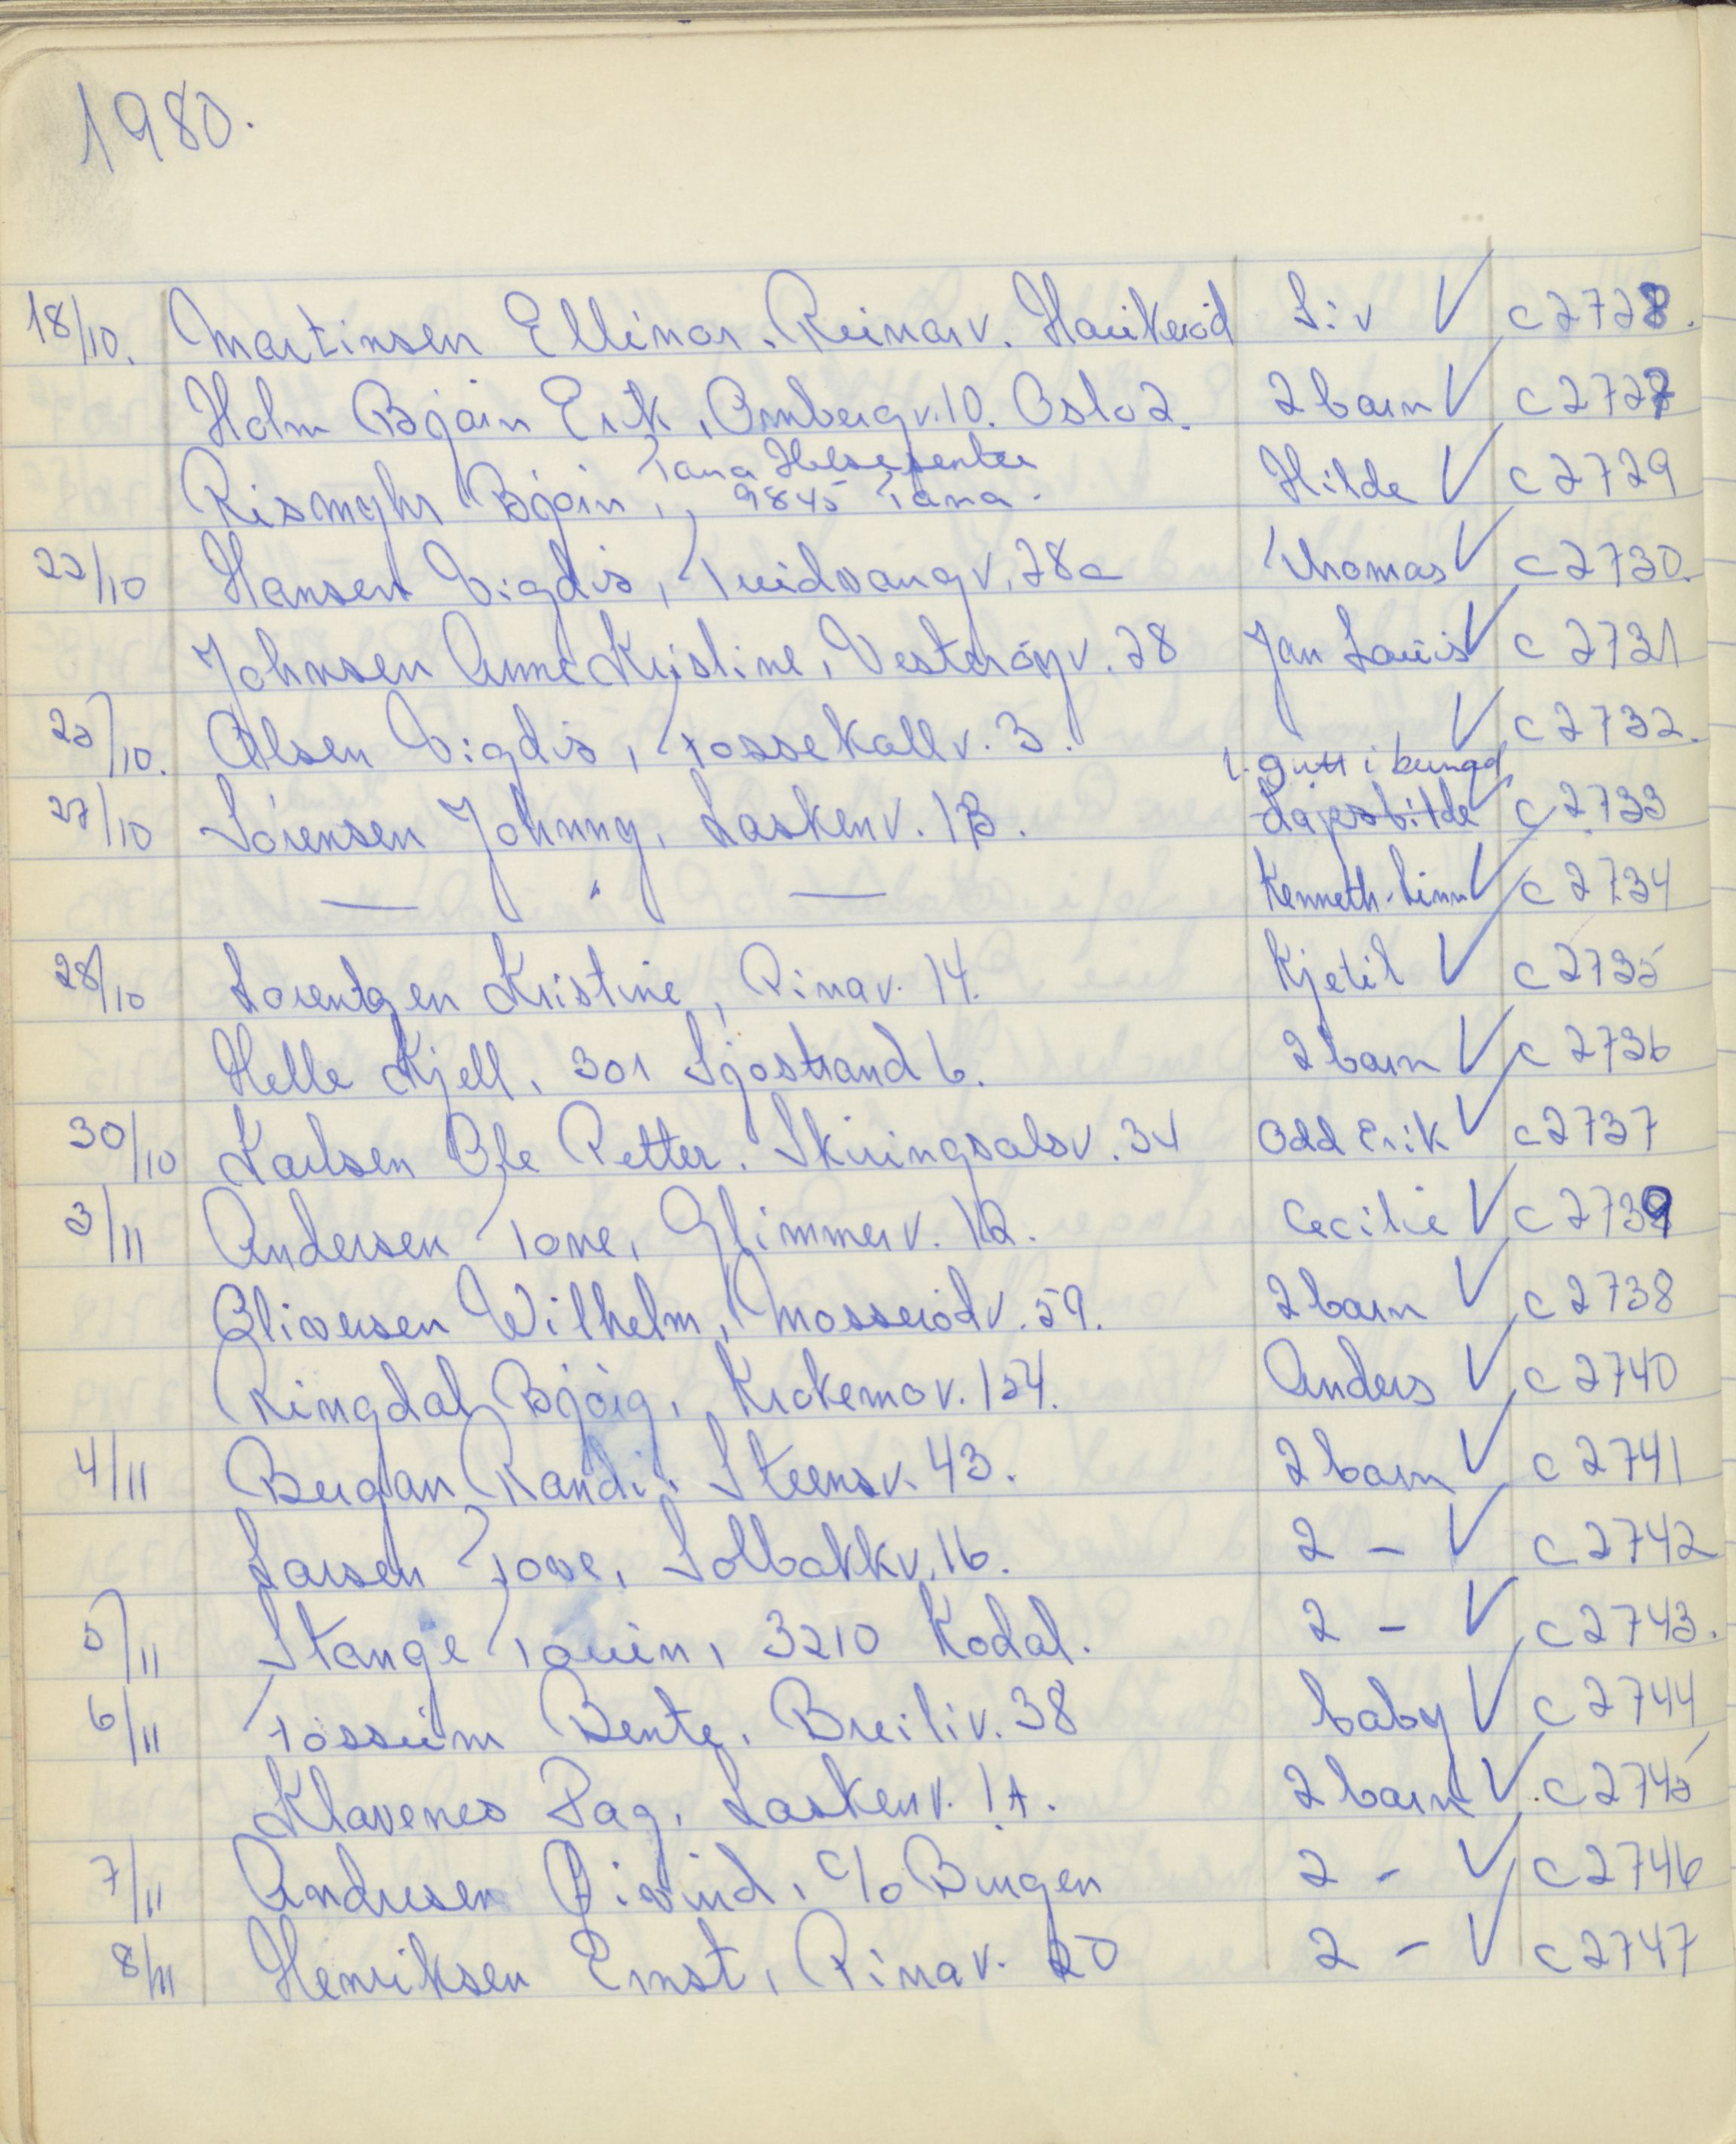 1980.
18/10. Martinsen Ellinor. Reinarv. Haukerød Siv V C2728.
Holm Bjørn Erik, Ombergv. 10. Oslo 2. 2 barn V C2727
Tana Helsesenter
Rismyhr Bjørn, 9845 Tana. Hilde V C2729
22/10 Hansen Vigdis, Tveidvangv. 28c Thomas V C2730.
Johnsen Anne Kristine, Vesterøyv. 28 Jan Louis V C2731
25/10. Olsen Vigdis, Fossekallv. 3. V C2732.
1. gutt i bunad
27/10 Sørensen Johnny, Laskenv. 1B. C2733
— " — Kenneth-Linn V C2734
28/10 Lorentzen Kristine, Pinav. 14. Kjetil V C2735
Helle Kjell, 301 Sjøstrand 6. 2 barn V C2736
30/10 Karlsen Ole Petter. Skiringsalsv. 34 Odd Erik V C2737
3/11 Andersen Tone, Glimmerv. 12. Cecilie V C2739
Oliversen Wilhelm, Mosserødv. 59. 2 barn V C2738
Ringdal Bjørg, Krokemov. 154. Anders V C2740
4/11 Bergan Randi. Steensv. 43. 2 barn V C2741
Larsen Tove, Solbakkv. 16. 2 - V C2742
5/11 Stange Torunn, 3210 Kodal. 2 - V C2743.
6/11 Fossum Bente. Breiliv. 38 baby V C2744
Klavenes Dag, Laskenv. 1A. 2 barn V C2745
7/11 Andresen Øivind, C/o Burgen 2 - V C2746
8/11 Henriksen Ernst, Pinav. 20 2 - V C2747